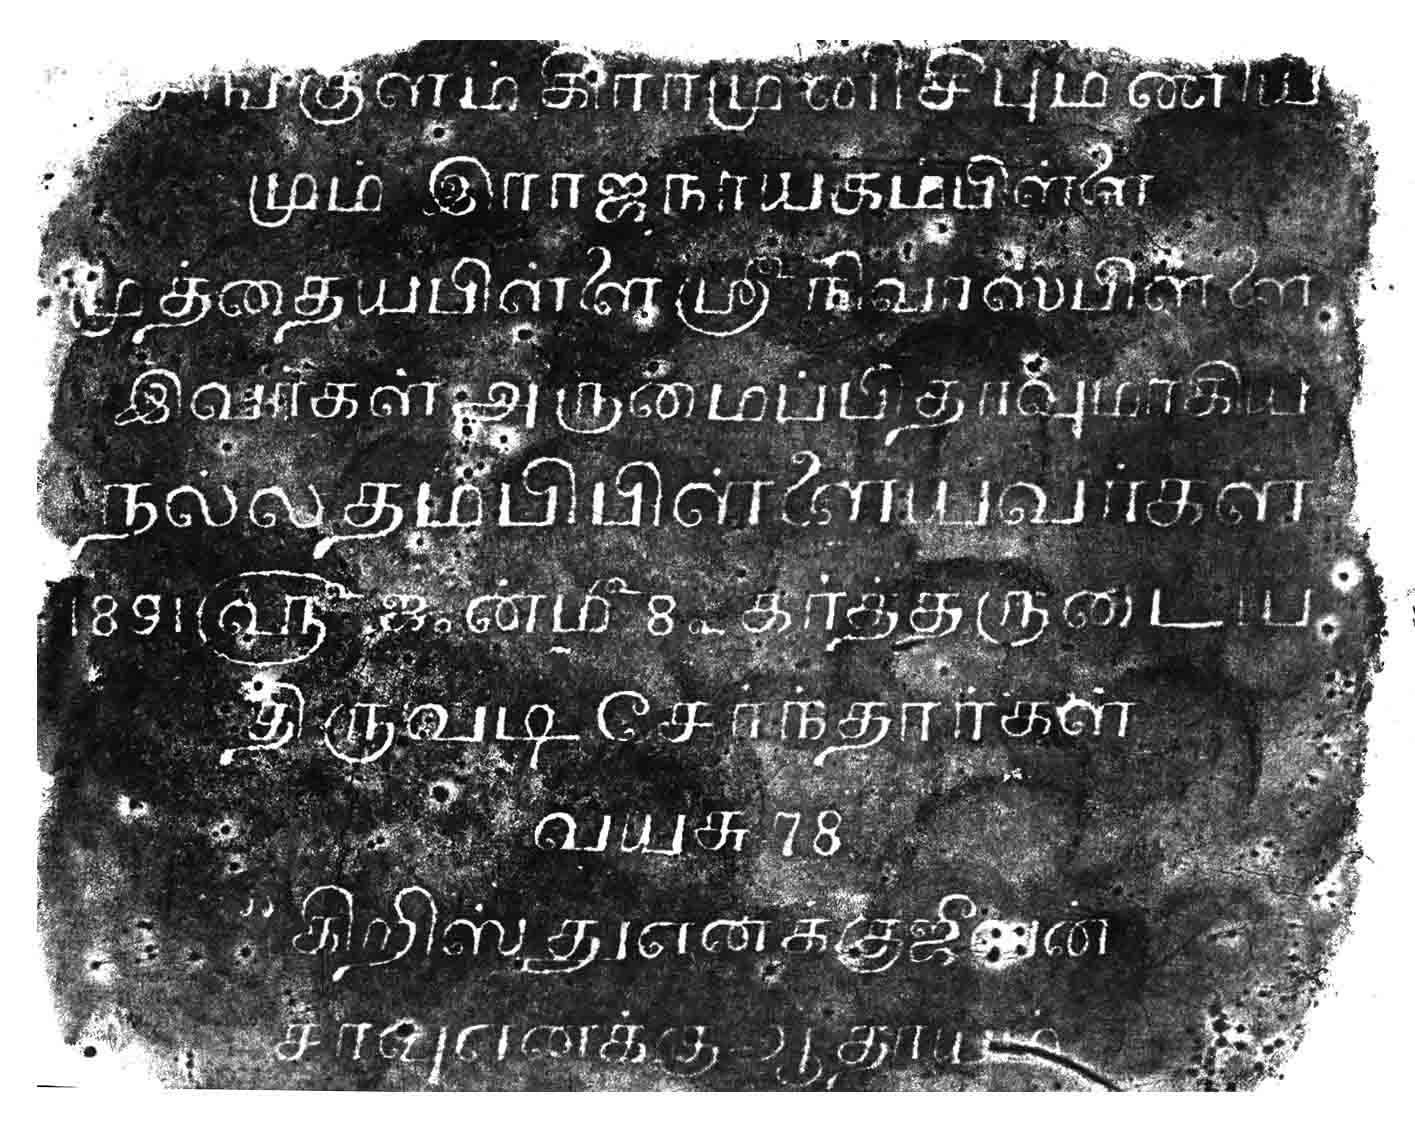 கிராமுனிசிபுமணிய
மும் இராஜநாயகம்பிள்ளை
முத்தையபிள்ளை ஸ்ரீநிவாஸ்பிள்ளை
இவர்கள் அருமைப்பிதாவுமாகிய
நல்லதம்பிபிள்ளையவர்கள்
1891 ௵ ஜூன்மீ 8௳ கர்த்தருடைய
திருவடி சேர்ந்தார்கள்
வயசு 78
"கிறிஸ்துஎனக்குஜீவன்
சாவுஎனக்கு ஆதாயம்